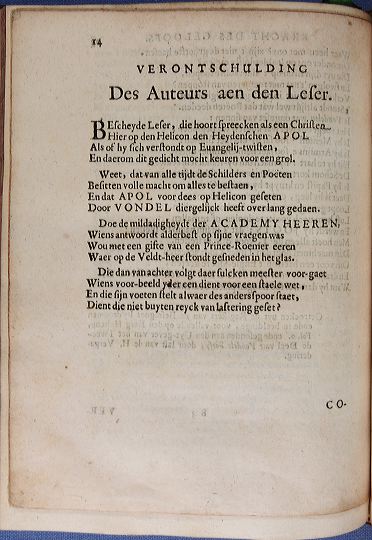 14
VERONTSCHULDING
Des Auteurs aen den Leser.
BEscheyde Leser, die hoort spreecken als een Christen
Hier op den Helicon den Heydenschen APOL
Als of hy sich verstondt op Euangelij-twisten,
En daerom dit gedicht mocht keuren voor een grol.
Weet, dat van alle tijdt de Schilders en Poëten
Besitten volle macht om alles te bestaen,
En dat APOL voor dees op Helicon geseten
Door VONDEL diergelijck heeft over lang gedaen.
Doe de mildadigheydt der ACADEMY HEEREN,
Wiens antwoordt alderbest op sijne vraegen was
Wou met een gifte van een Prince-Roemer eeren
Waer op de Veldt-heer stondt gesneden in het glas.
Die dan van achter volgt daer sulcken meester voor-gaet
Wiens voor-beeld yder een dient voor een staele wet,
En die sijn voeten stelt alwaer des anders poor staet,
Dient die niet buyten reyck van lastering geset?
CO-